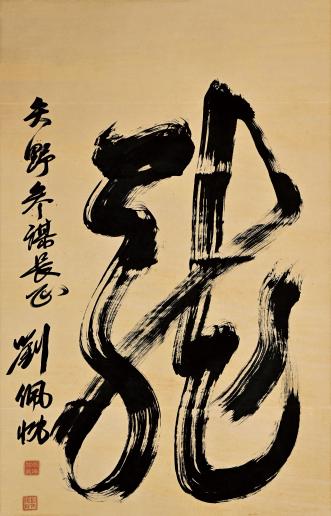 龍
矢野参謀長正
劉佩忱